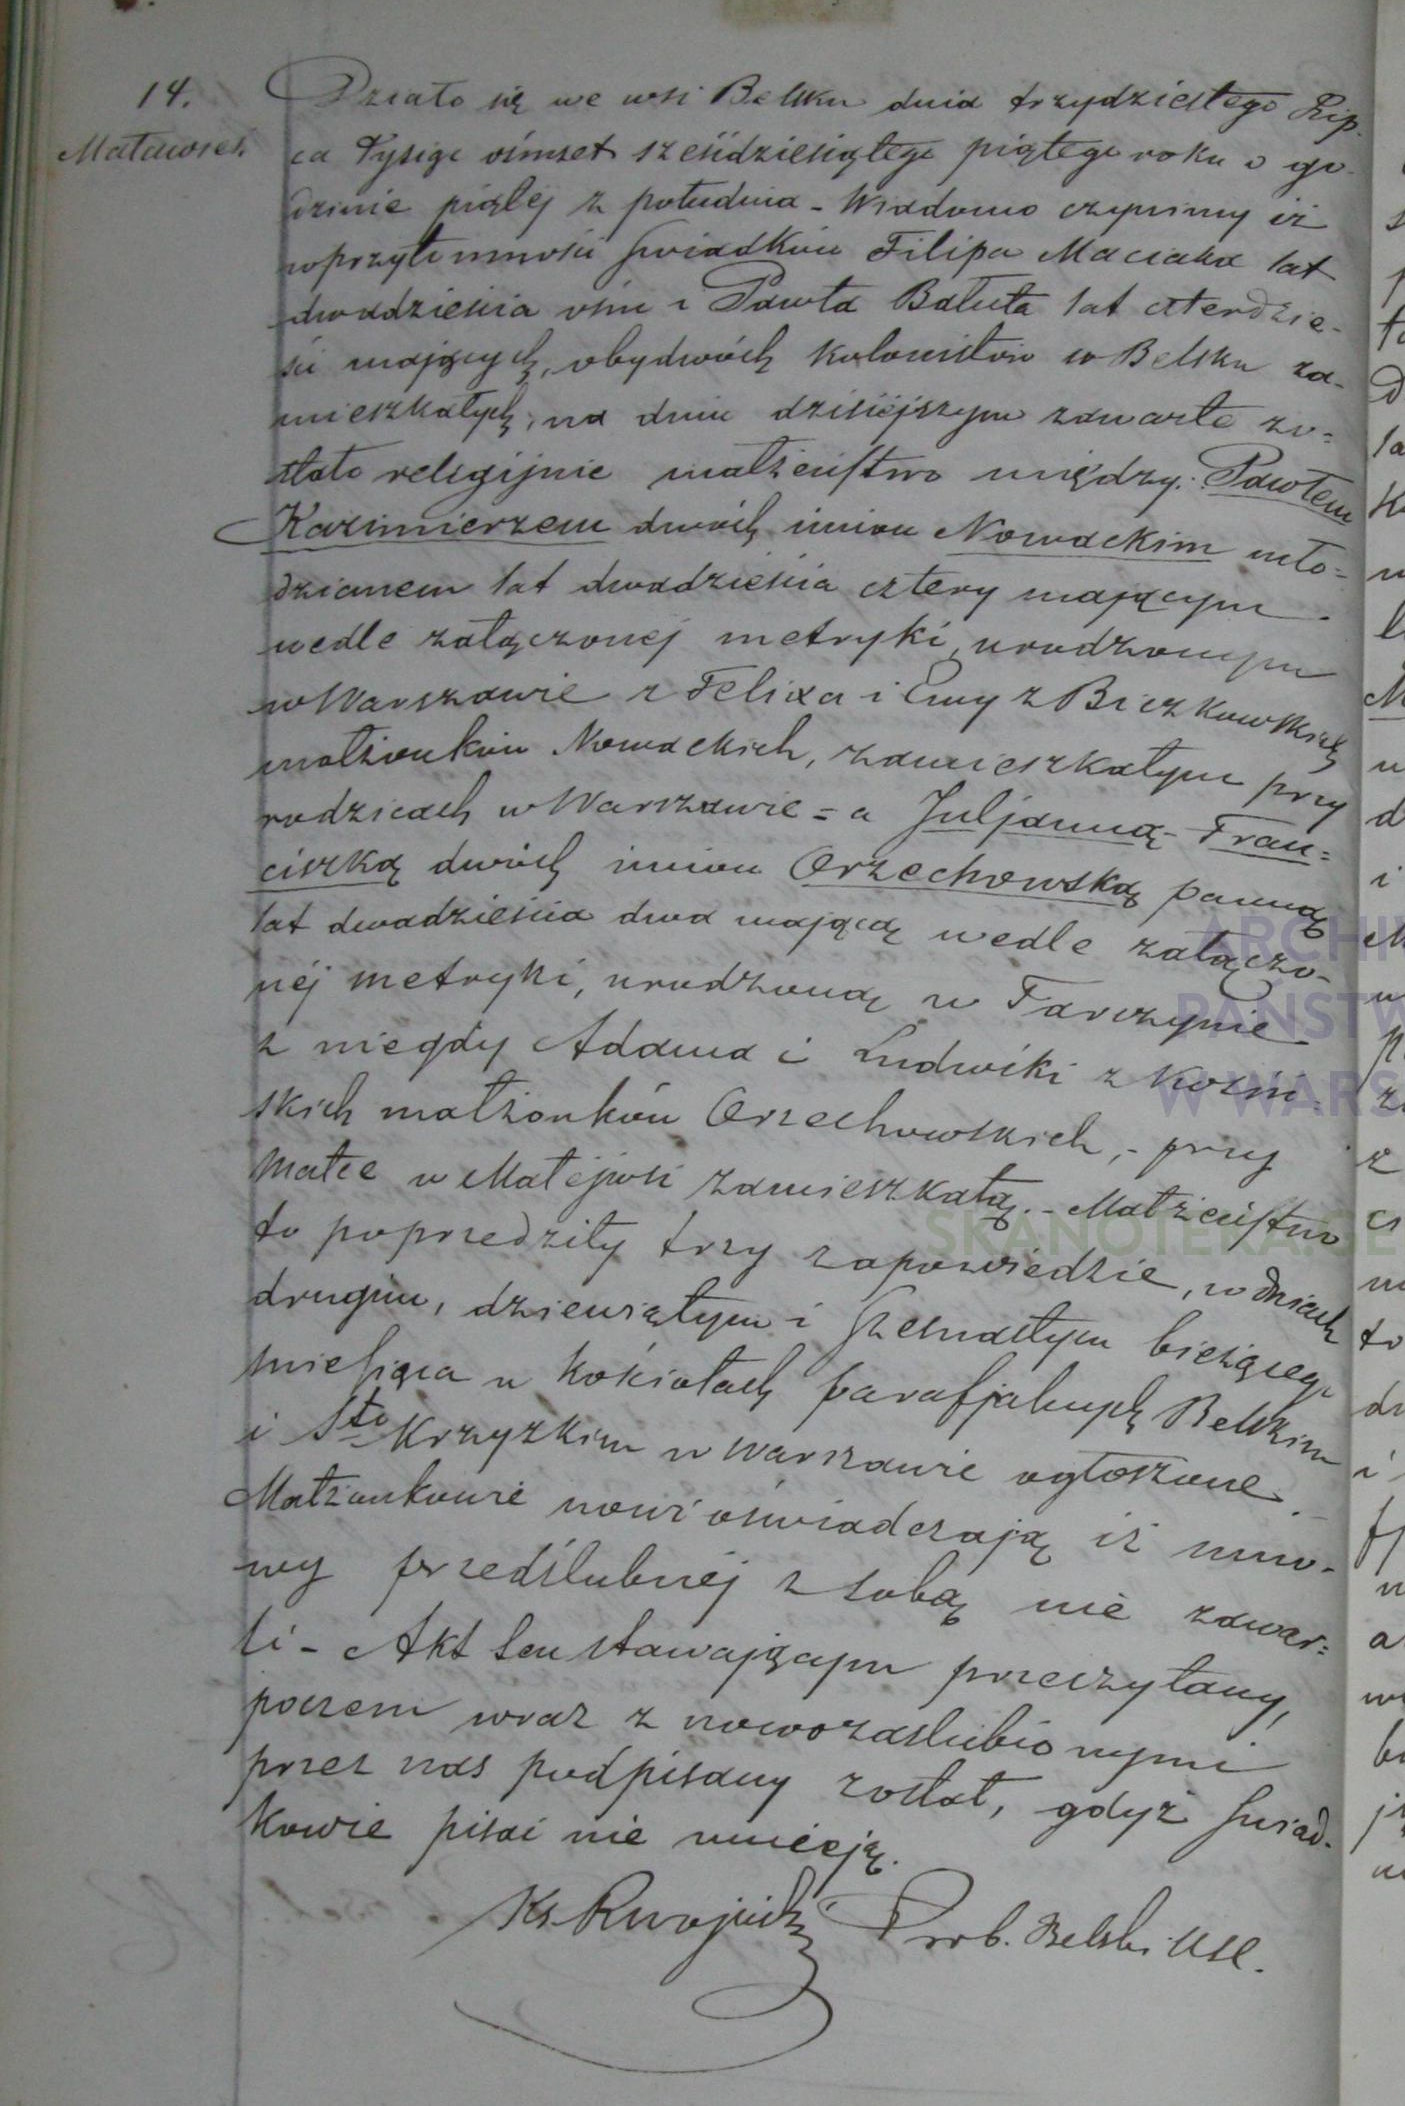 14.
Maławieś.
Działo się we wsi Belsku dnia trzydziestego Lip-
ca Tysiąc ośmset sześćdziesiątego piątego roku o go-
dzinie piątej z południa - Wiadomo czynimy iż
w przytomności świadków Filipa Maciaka lat
dwadzieścia ośm i Pawła Bałuta lat czterdzie-
ści mających, obydwóch kolonistów w Belsku za-
mieszkałych, na dniu dzisiejszym zawarte zo=
stało religijnie małżeństwo między: Pawłem
Kazimierzem dwóch imion Nowackim mło=
dzianem lat dwadzieścia cztery mającym
wedle załączonej metryki, urodzonym
w Warszawie z Felixa i Ewy z Biczkowskich
małżonków Nowackich, zamieszkałym przy
rodzicach w Warszawie = a Juljanną - Fran=
ciszką dwóch imion Orzechowską panną
lat dwadzieścia dwa mającą wedle załączo-
nej metryki, urodzoną w Tarczynie
z niegdy Adama i Ludwiki z
skich małżonków Orzechowskich, - przy
Matce w Małejwsi zamieszkałą. - Małżeństwo
to poprzedziły trzy zapowiedzie, w dniach
drugim, dziewiątym i szesnastym bieżącego
miesiąca w kościołach parafjalnych Belskim
i Sto Krzyzkim w Warszawie ogłoszone.
Małżonkowie nowi oświadczają iż umo-
wy przedślubnej z sobą nie zawar=
li - Akt ten stawającym przeczytany,
poczem wraz z nowozaślubionymi
przez nas podpisany został, gdyż świad-
kowie pisać nie umieją.
Ks. Prob. Belski USC.
ARCHI
PAŃSTW
W WARS
SKANOTEKA.GE